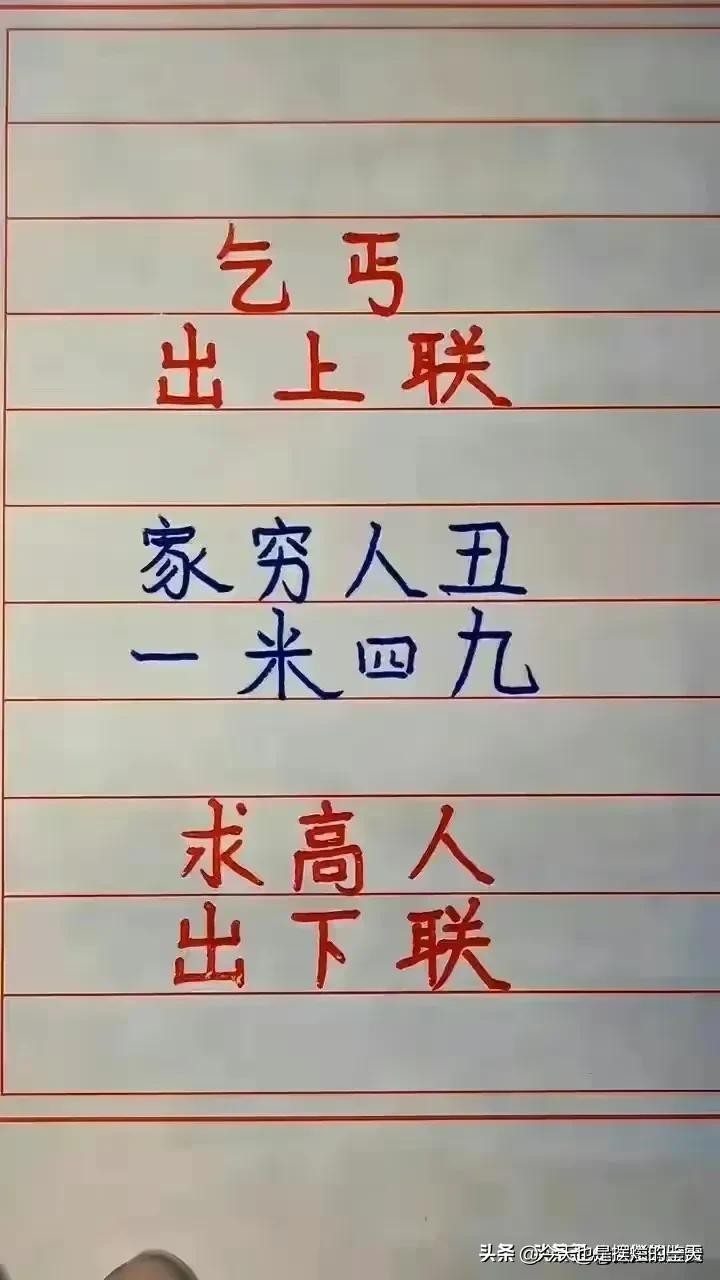 乞丐
出上联
家穷人丑
一米四九
求高人
出下联
头条